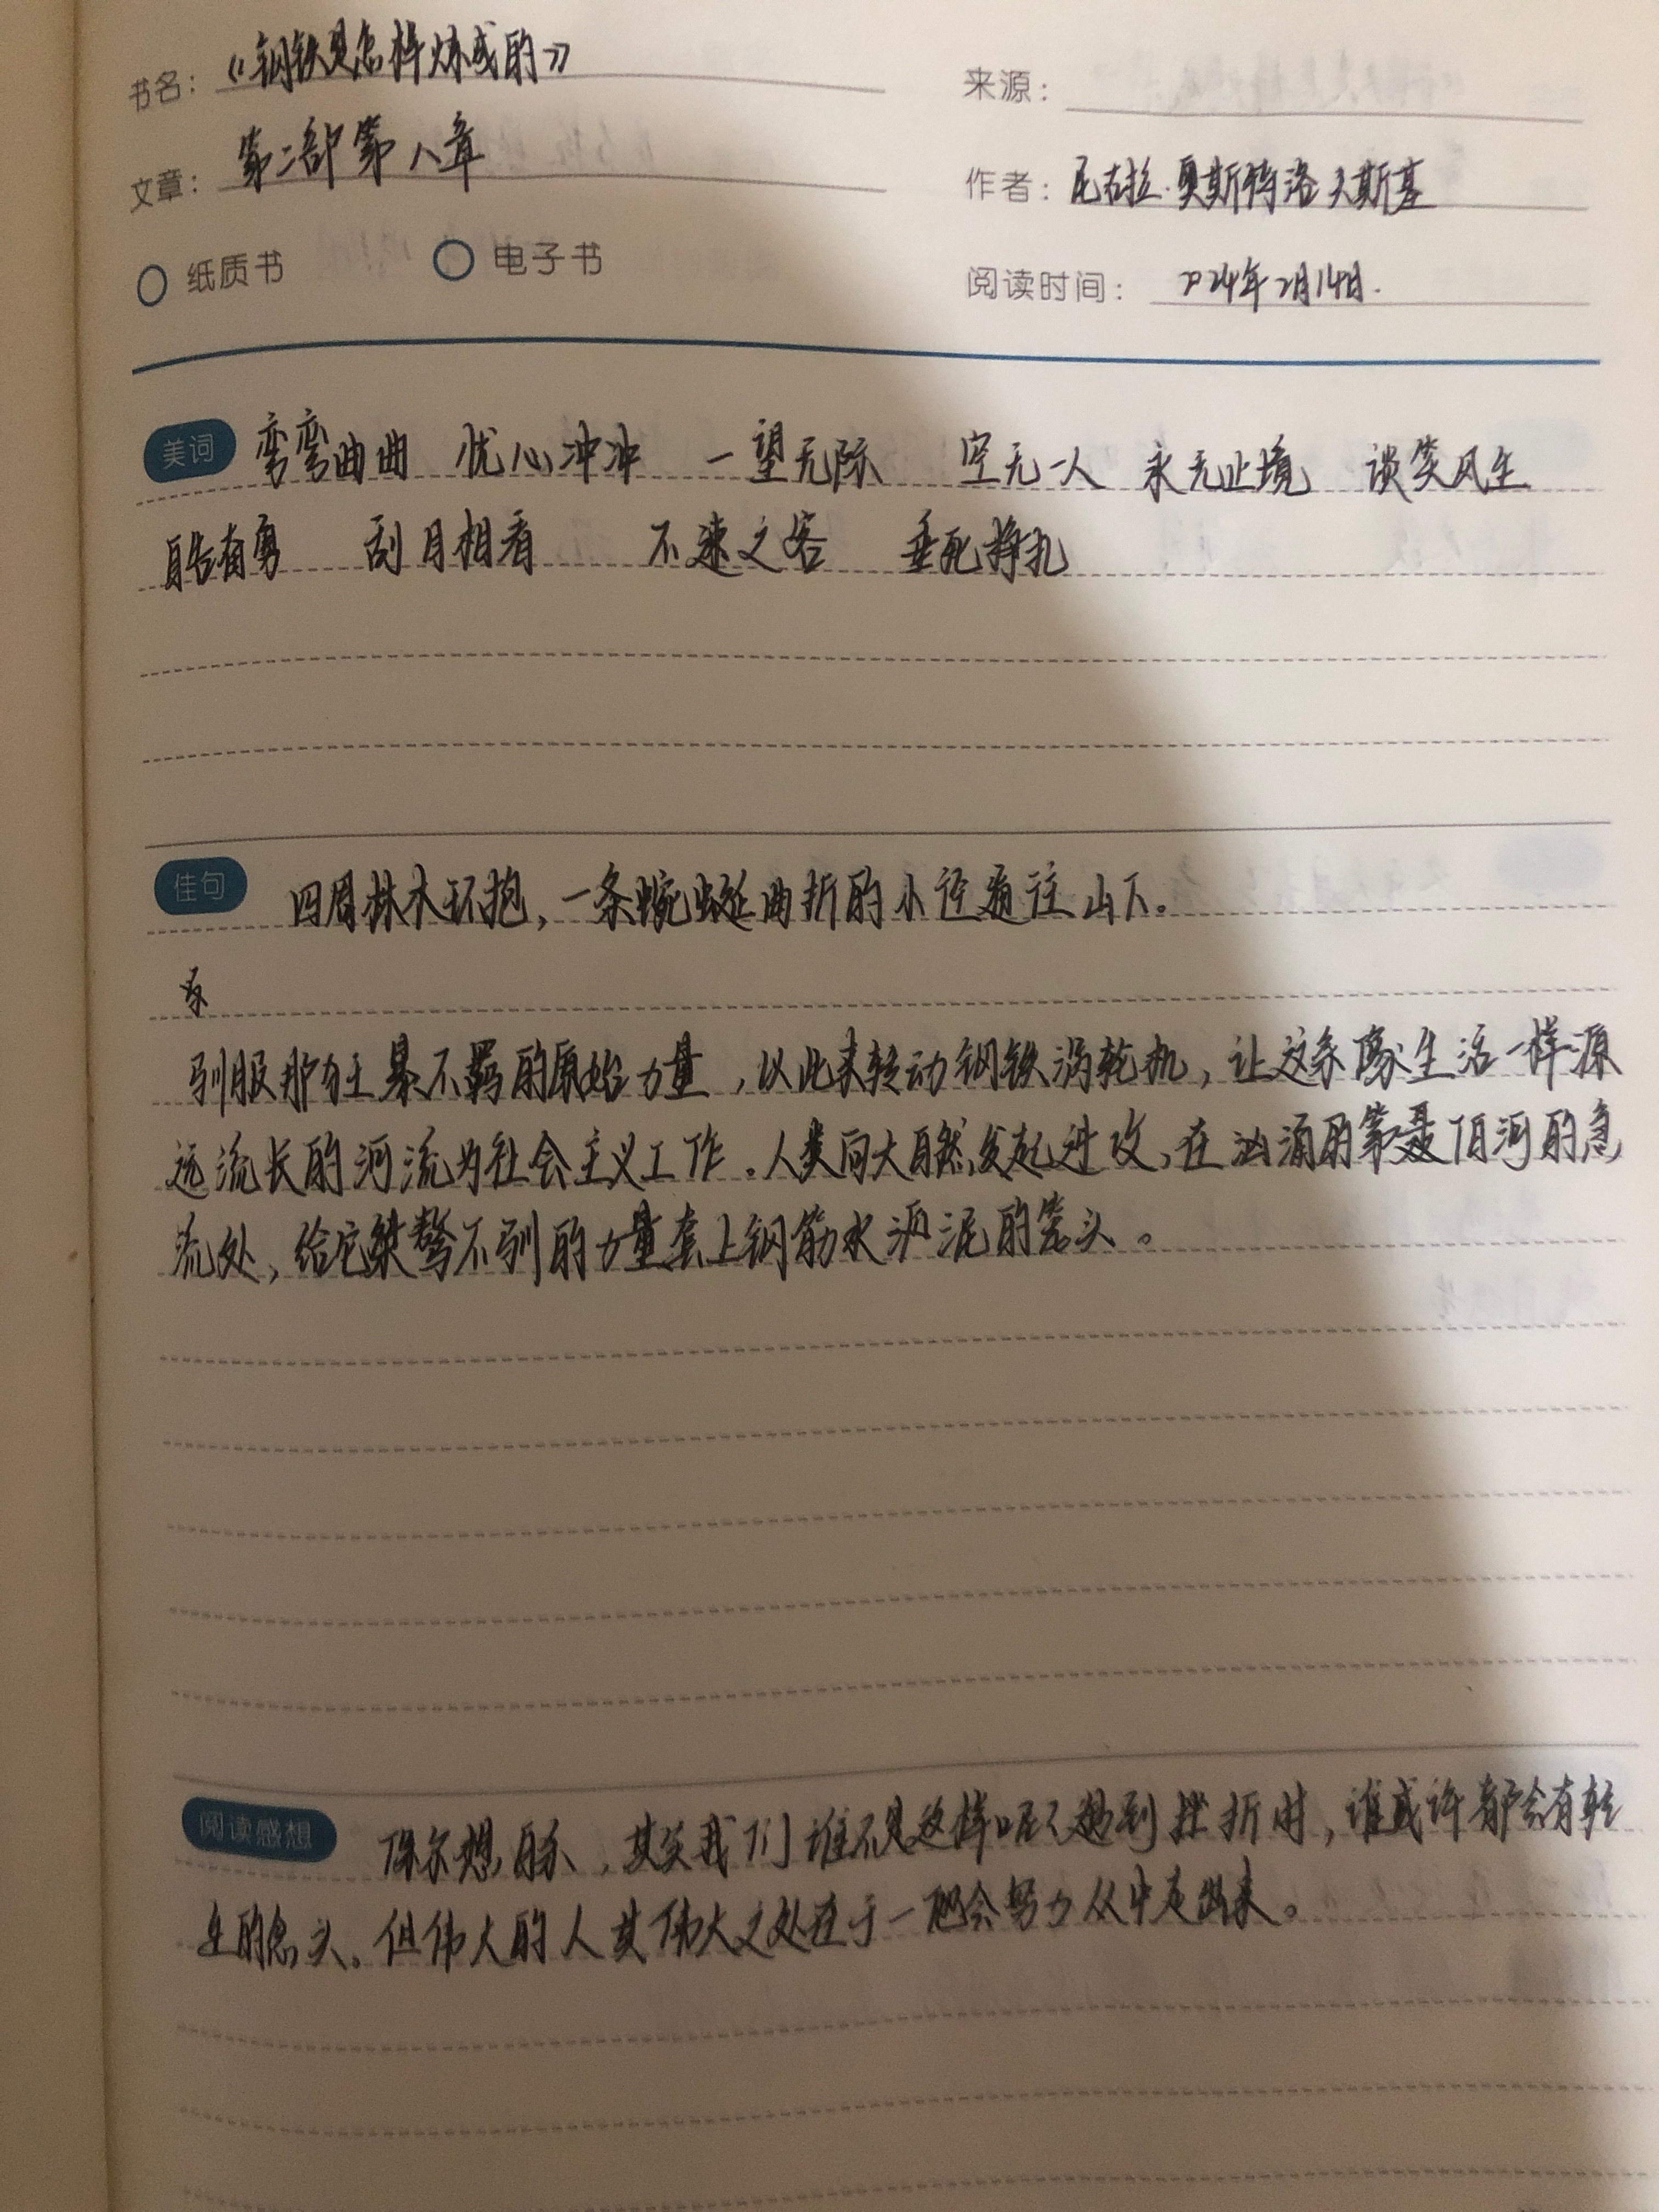 书名：《钢铁是怎样炼成的》
来源：
文章：第二部第八章
作者：尼古拉·奥斯特洛夫斯基
纸质书 电子书
阅读时间：2024年2月14日.
美词 弯弯曲曲 忧心冲冲 一望无际 空无一人 永无止境 谈笑风生
自告奋勇 刮目相看 不速之客 垂死挣扎
佳句 四周林木环抱，一条蜿蜒曲折的小径通往山下。
驯服那狂暴不羁的原始力量，以此来转动钢铁涡轮机，让这条像生活一样源
远流长的河流为社会主义工作。人类向大自然发起进攻，在汹涌的第聂伯河的急
流处，给它桀骜不驯的力量套上钢筋水泥的笼头。
阅读感想 保尔想自杀，其实我们谁不是这样呢？遇到挫折时，谁或许都会有轻
生的念头。但伟大的人其伟大之处在于一切会努力从中走出来。